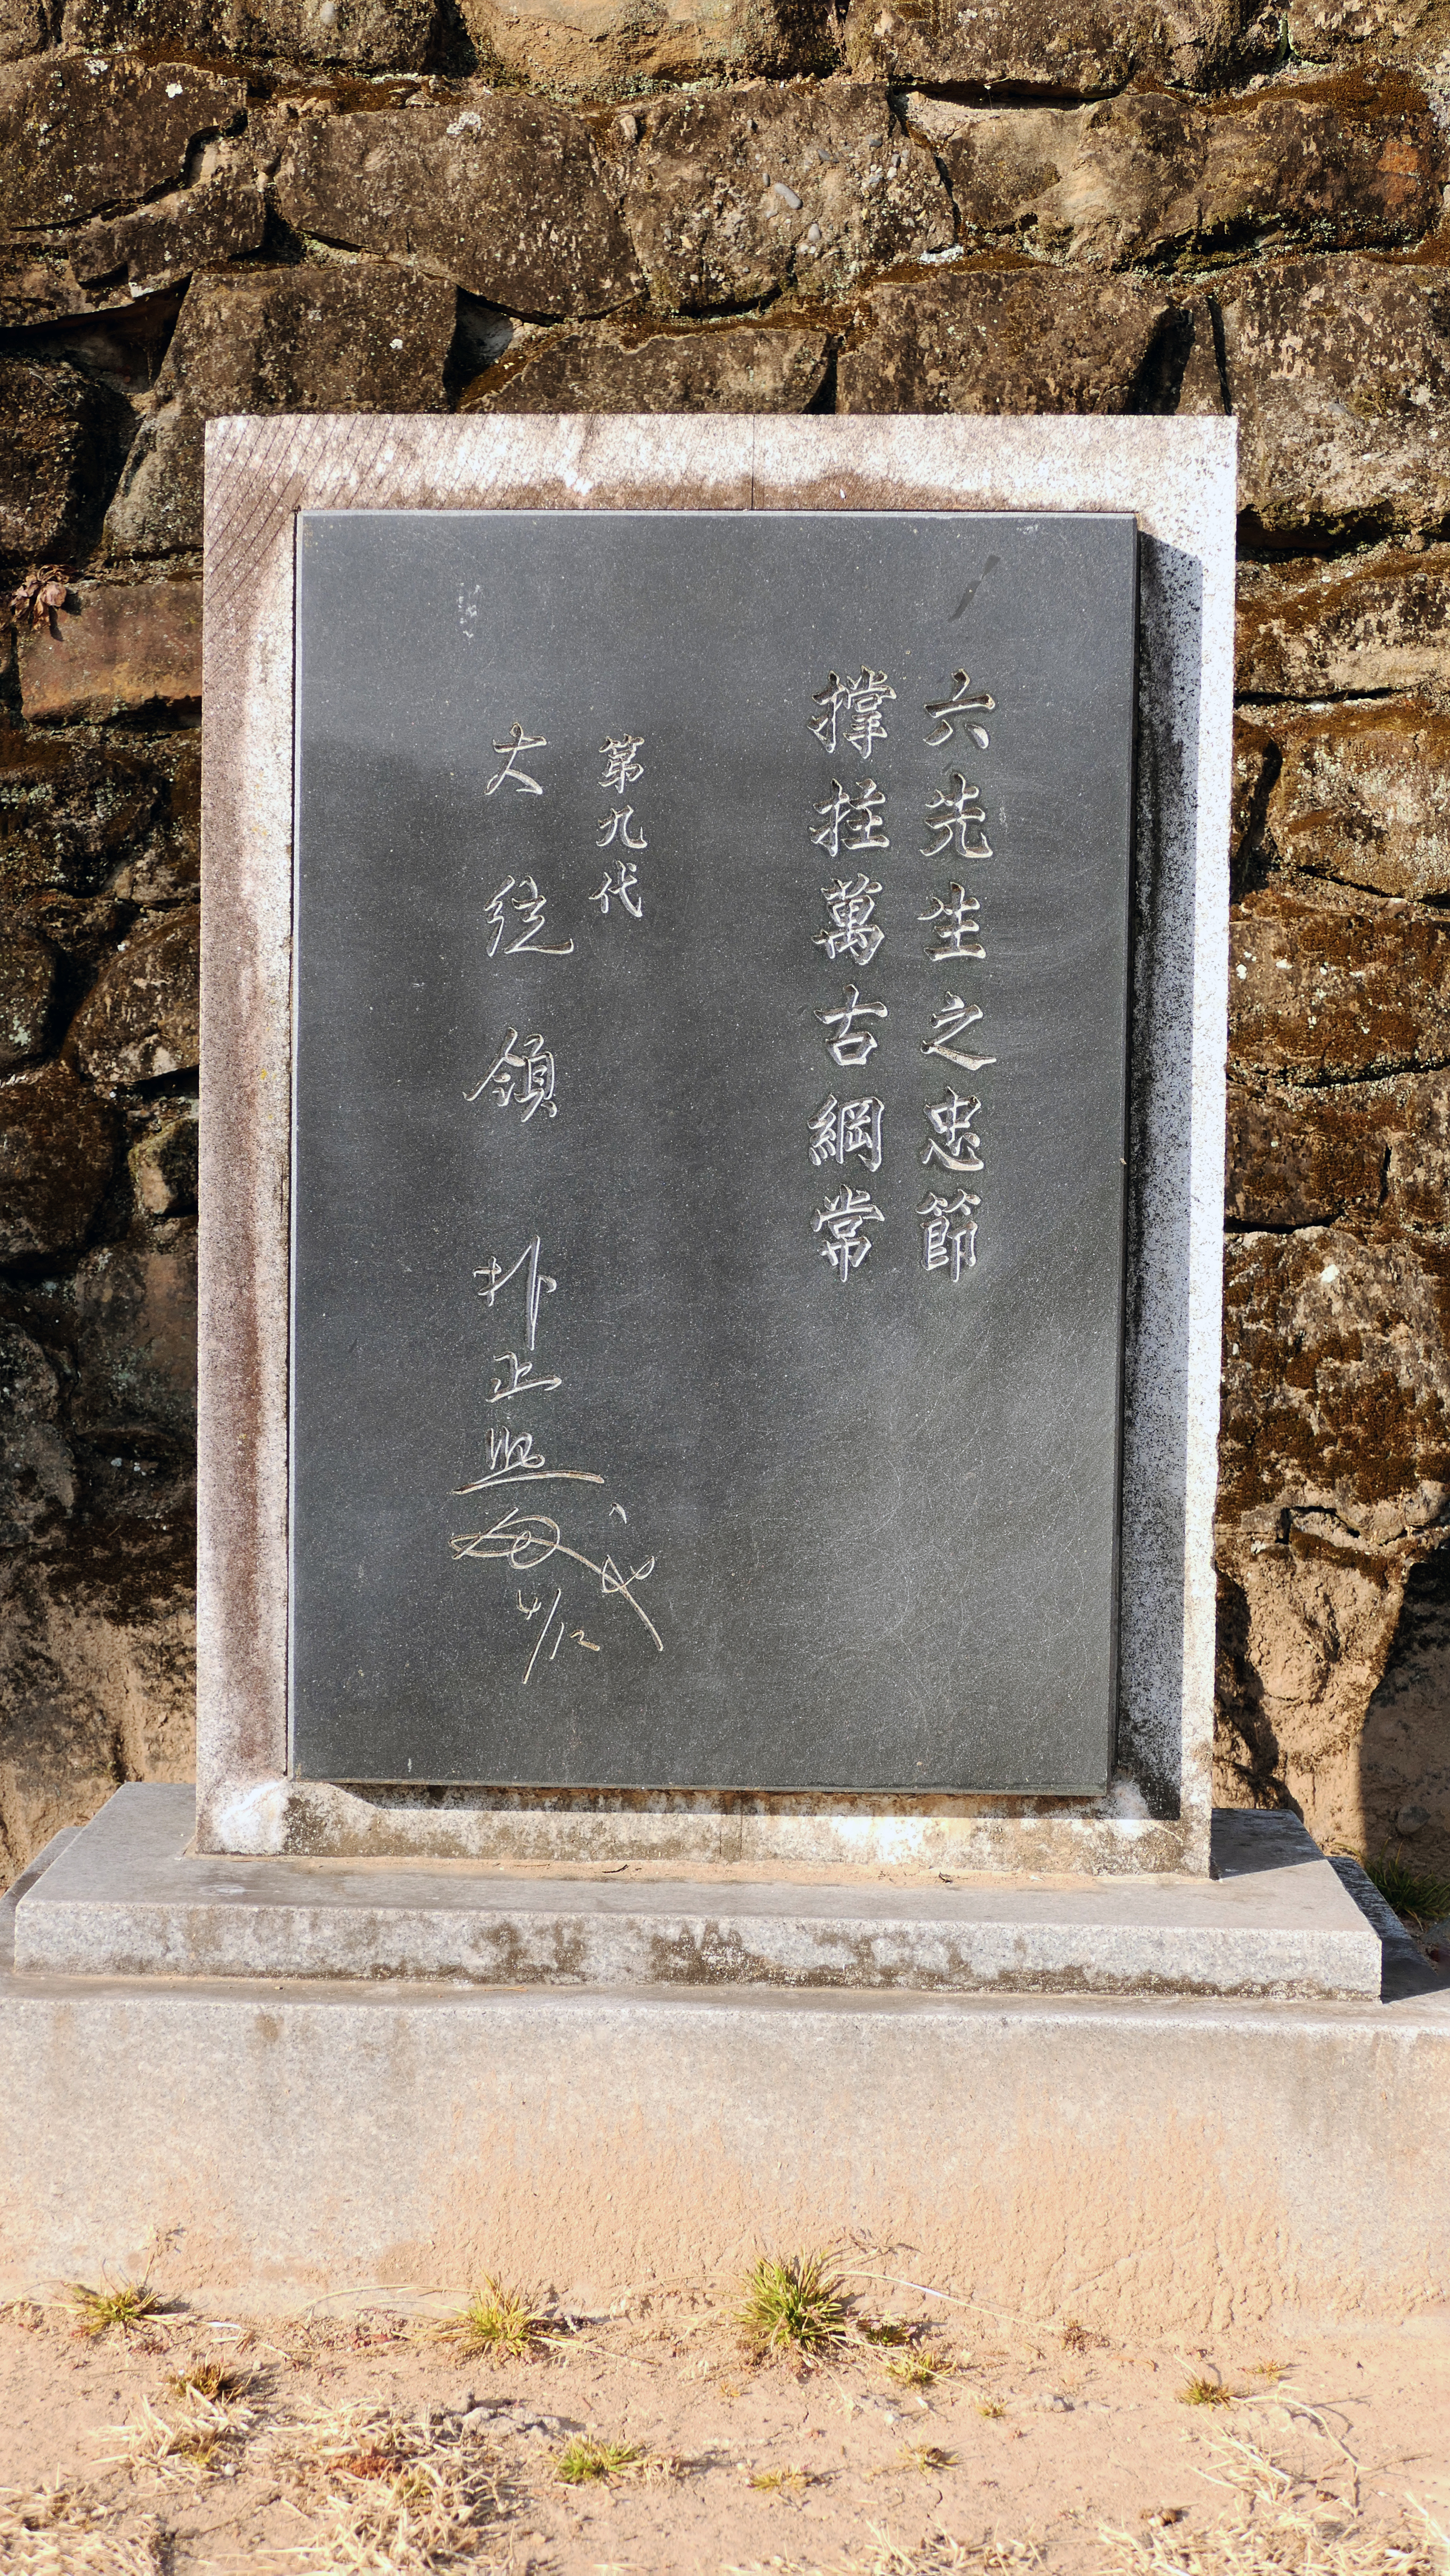 六先生之忠節
撐拄萬古綱常
第九代
大統領 朴正熙
4/12